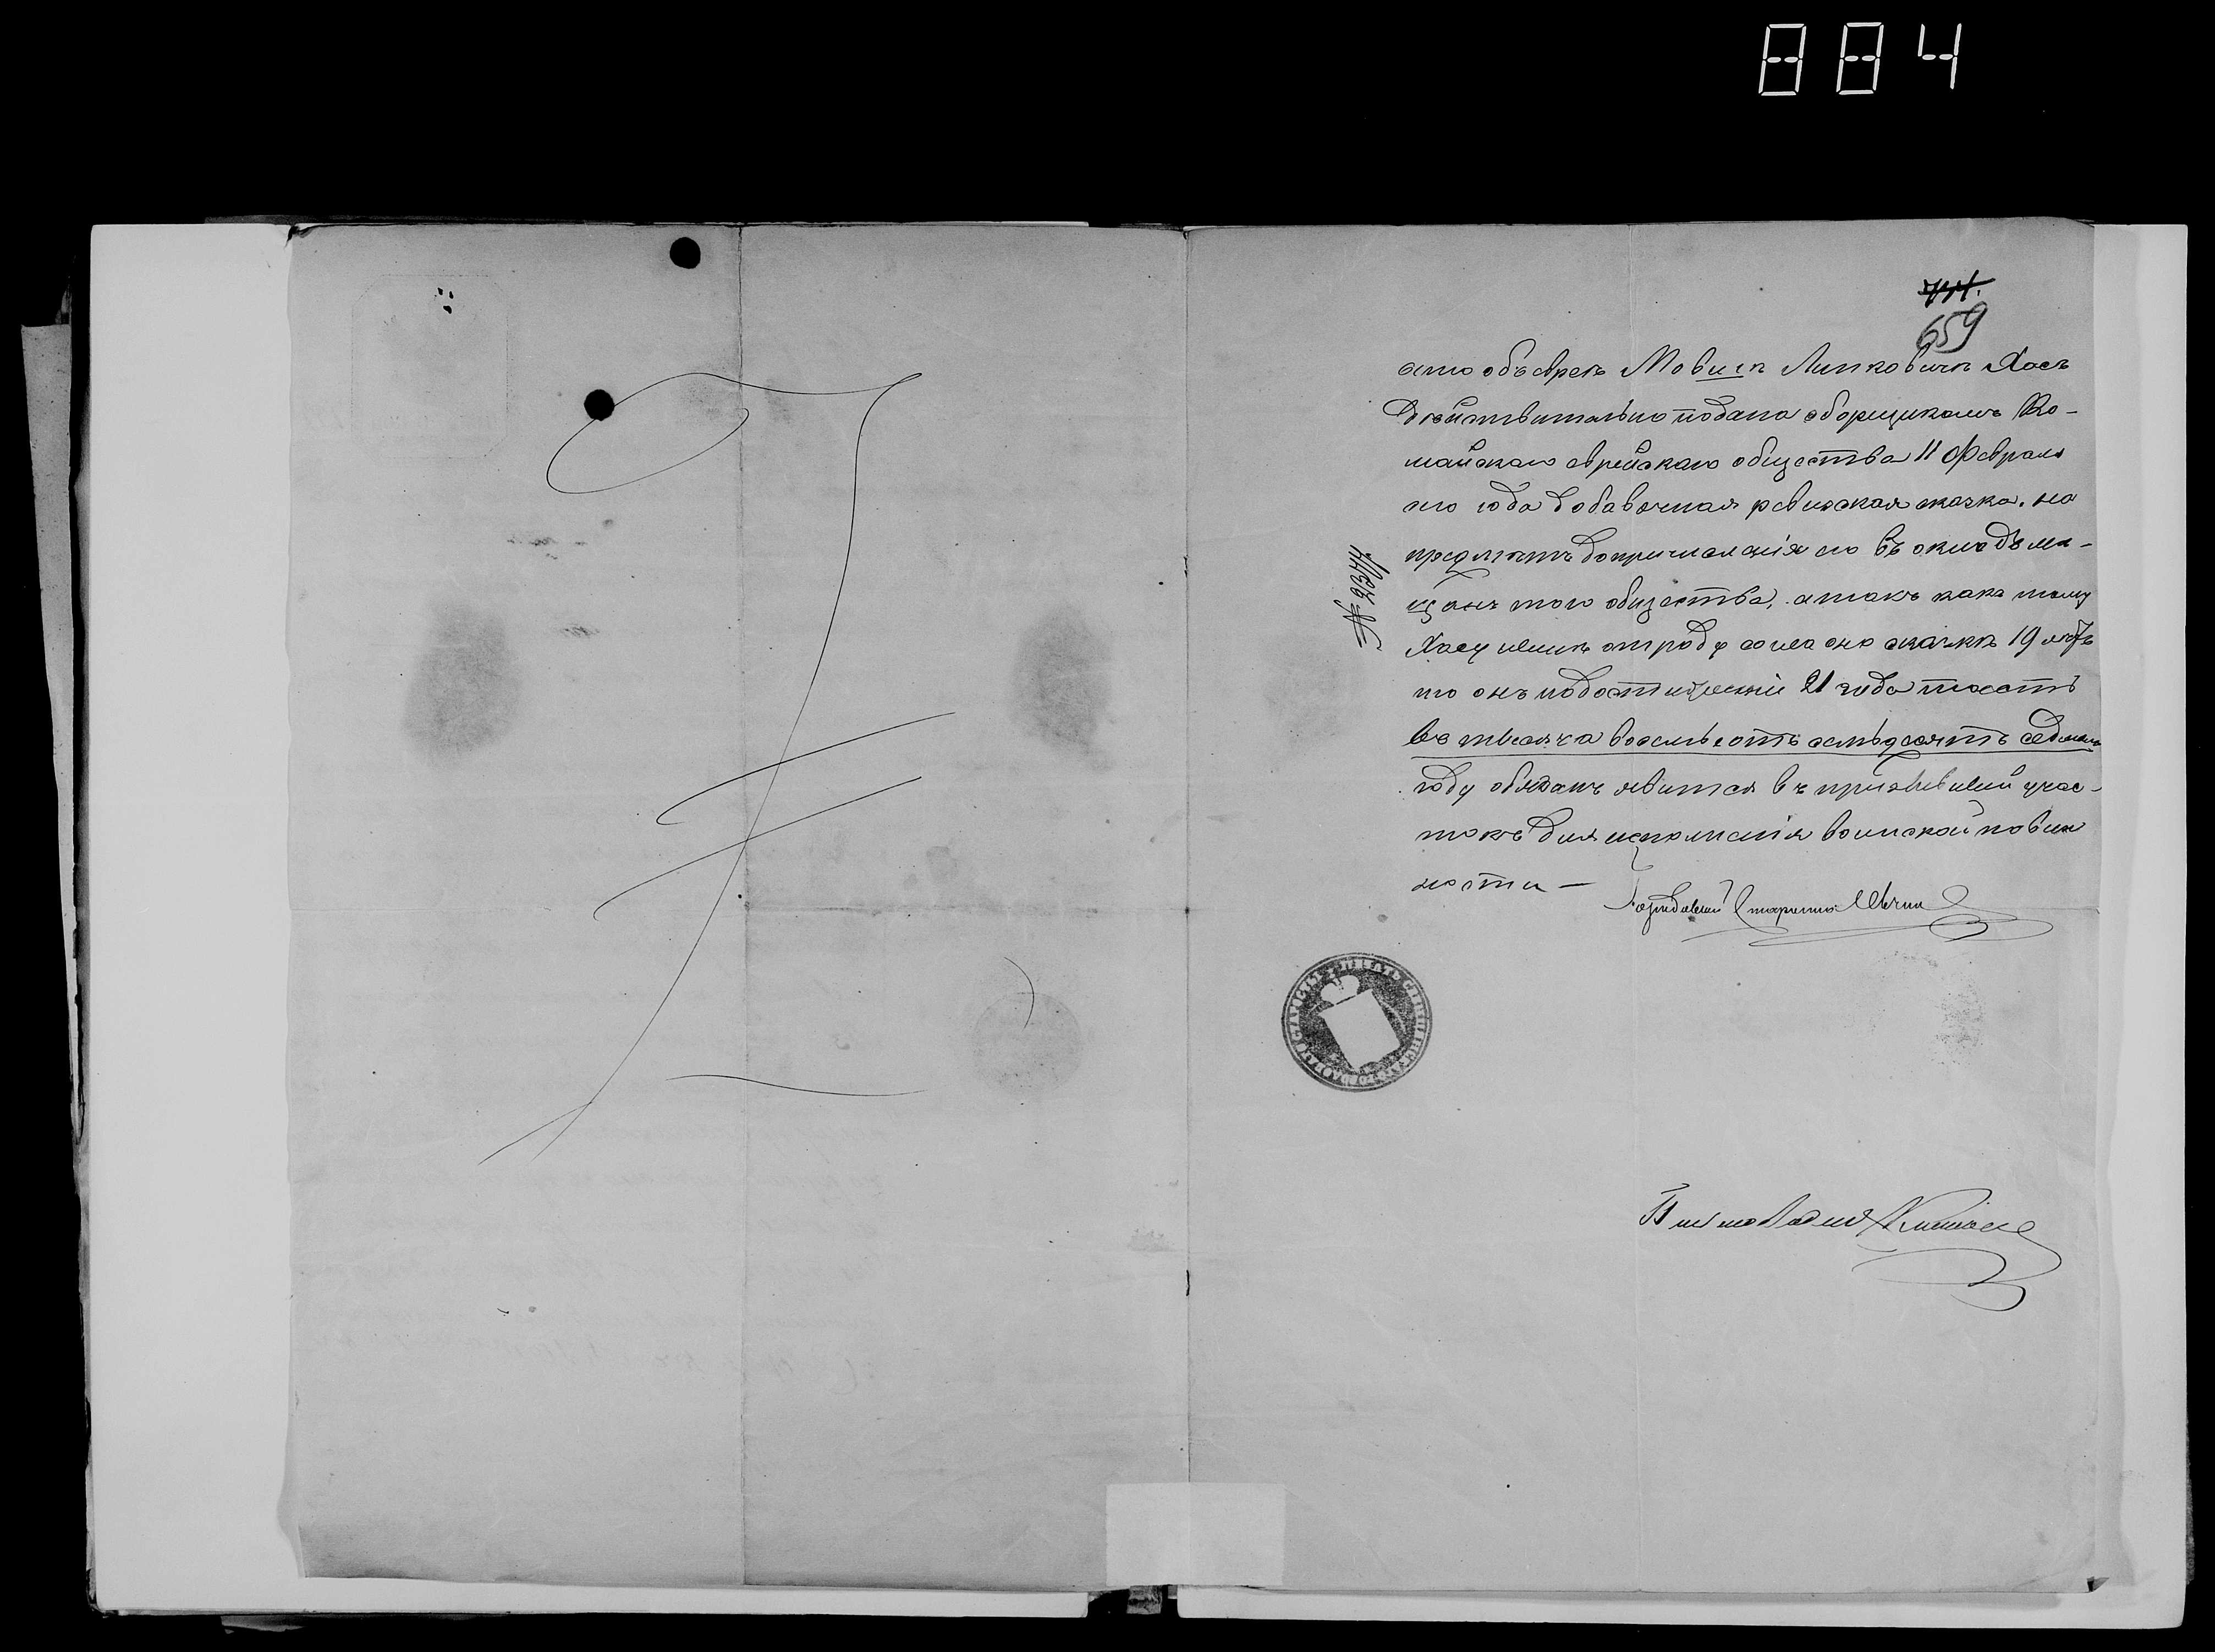 884
659
что объ евреѣ Мовшѣ Липковичѣ Хасъ
дѣйствительно подана сборщикомъ Ко-
майскаго еврейскаго общества 11 Февраля
сего года добавочная ревизская сказка, на
предметъ допричисленія его въ окладъ мѣ-
щанъ того общества, а такъ какъ тому
Хасу нынѣ отроду согласно сказкѣ 19 лѣтъ
то онъ по достиженіи 21 года тоесть
въ тысяча восемьсотъ семьдесятъ седьмомъ
году обязанъ явится въ призывный учас-
токъ для исполненія воинской повин
ности —
№ 2344
Староста